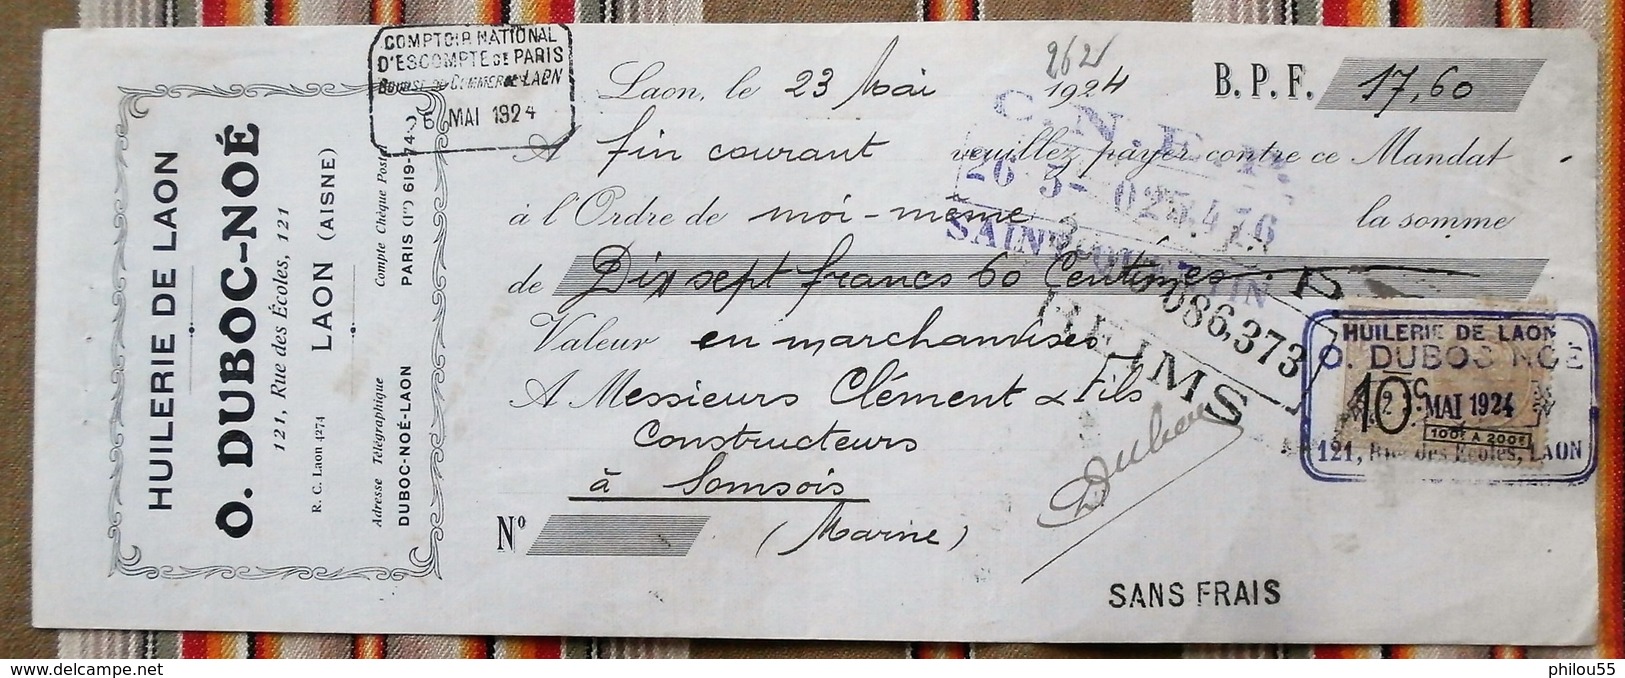 HUILERIE DE LAON
O. DUBOC-NOÉ
121, Rue des Écoles, 121
LAON (AISNE)
R. C. Laon 4274
Compte Chèque Postal
PARIS (Iᵉʳ) 619-74
Adresse Télégraphique
DUBOC-NOÉ-LAON
COMPTOIR NATIONAL
D'ESCOMPTE DE PARIS
BOURSE DE COMMERCE LAON
26 MAI 1924
Laon, le 23 Mai 1924 B.P.F. 17,60
A fin courant veuillez payer contre ce Mandat
à l'Ordre de moi-même la somme
de Dix sept francs 60 Centimes
Valeur en marchandises
A Messieurs Clément & Fils
Constructeurs
à Somsois
(Marne)
Nº
C.N.E.P.
SAINT QUENTIN
086,373
REIMS
HUILERIE DE LAON
O. DUBOC NOÉ
10c
MAI 1924
100F A 200F
121, Rue des Ecoles, LAON
SANS FRAIS
philou55